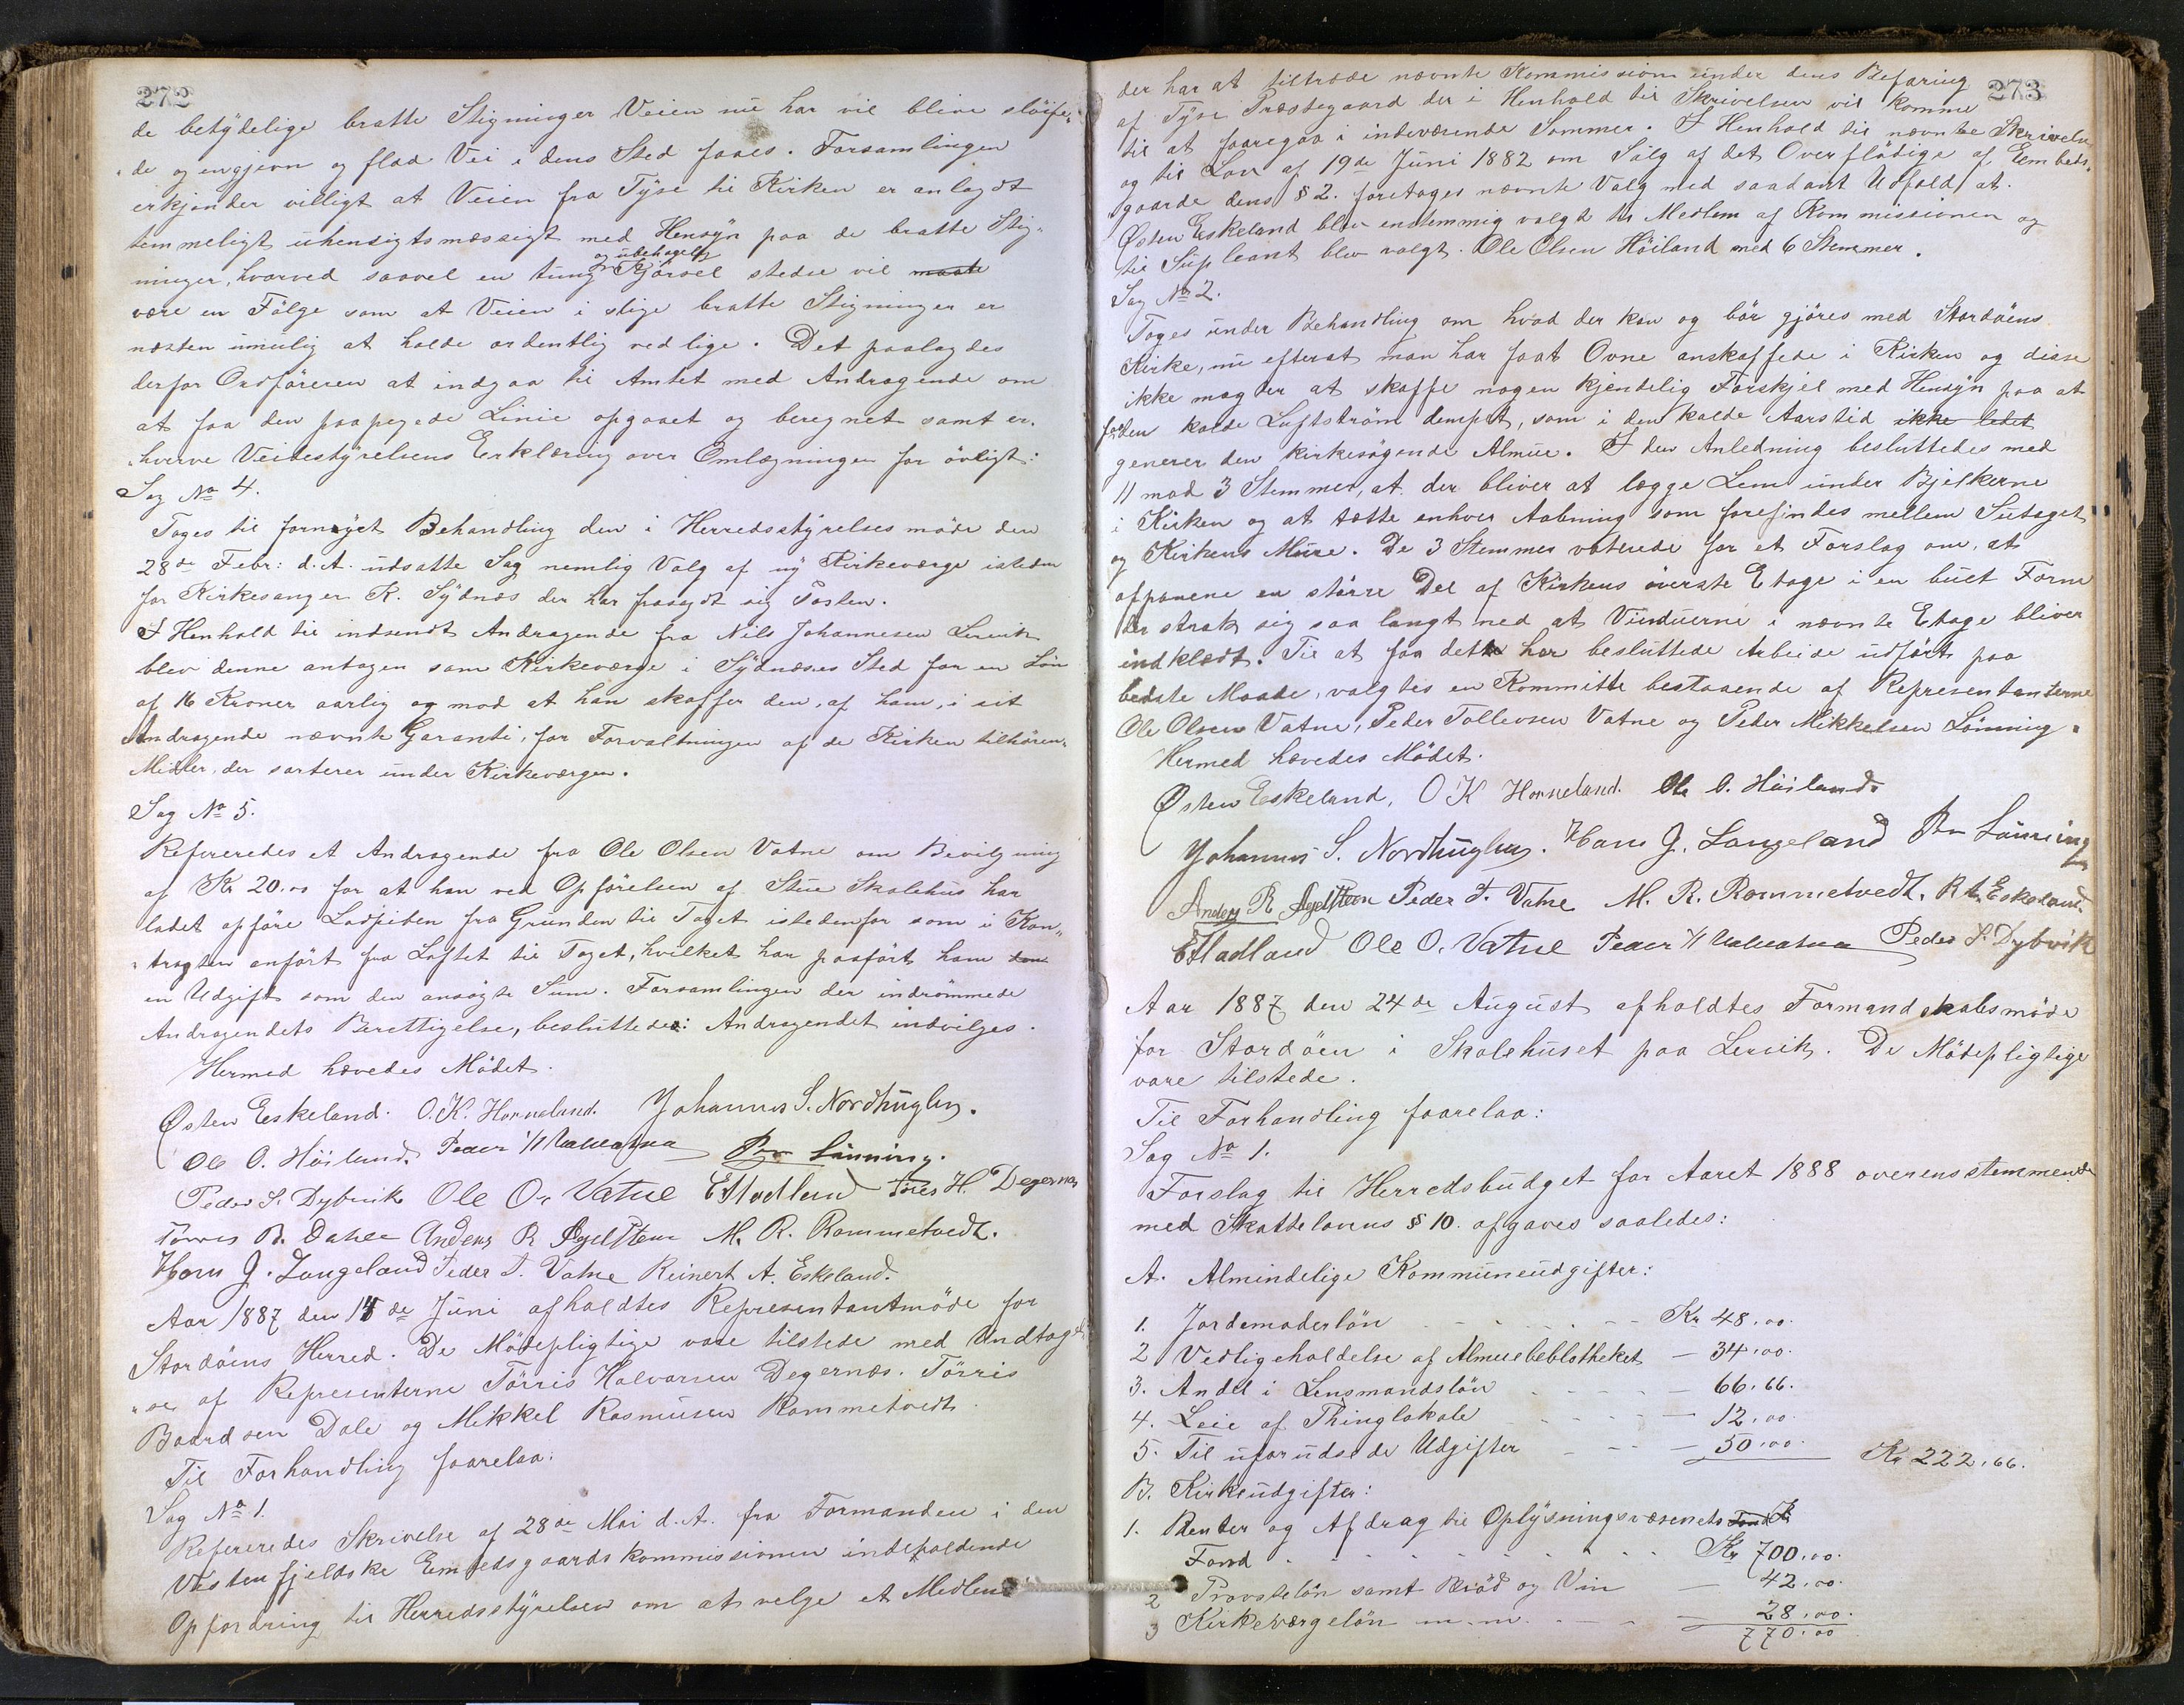 272
de betydelige bratte Stigninger Veien nu har vil blive slöife„
„de og en gjevn og flad Vei i dens Sted faaes. Forsamlingen
erkjender villigt at Veien fra Tyse til Kirken er anlagdt
temmeligt uhensigtsmæssigt med Hensyn paa de bratte Stig„
ninger, hvorved saavel en tung og ubehagelig Kjörsel stedse vil maate
være en Fölge som at Veien i slige bratte Stigninger er
næsten umulig at holde ordentlig vedlige. Det paalagdes
derfor Ordföreren at indgaa til Amtet med Andragende om
at faa den paapegede Linie opgaaet og beregnet samt er„
„hverve Veibestyrelsens Erklæring over Omlægningen for övrigt:
Sag No 4.
Toges til fornyet Behandling den i Herredsstyrelsesmöde den
28de Febr: d.A. udsatte Sag nemlig Valg af ny Kirkeværge isteden
for Kirkesanger K. Sydnæs der har frasagdt sig Posten.
I Henhold til indsendt Andragende fra Nils Johannesen Lervik
blev denne antagen som Kirkeværge i Sydnæses Sted for en Lön
af 16 Kroner aarlig og mod at han skaffer den, af ham, i sit
Andragende nævnte Garanti, for Forvaltningen af de Kirken tilhören„
Midler, der sorterer under Kirkeværgen.
Sag No 5.
Refereredes et Andragende fra Ole Olsen Vatne om Bevilgning
af Kr 20.00 for at han ved Opförelsen af Stue Skolehus har
ladet opföre Ladpiben fra Grunden til Taget istedenfor som i Kon„
„tragten anfört fra Loftet til Taget, hvilket har paafört ham den
en Udgift som den ansögte Sum. Forsamlingen der indrömmede
Andragendets Berettigelse, besluttedes: Andragendet indvilges.
Hermed hævedes Mödet.
Østen Eskeland. O.K. Horneland. Johannes S. Nordhuglen.
Ole O. Höiland. Peder M Valvatna Per Lönning.
Peder S. Dybvik Ole O. Vatne E Hadland Törres H. Degernes
Törres B. Dahle Anders R Agdestein M. R. Rommetvedt.
Hans J. Langeland Peder T. Vatne Reinert A. Eskeland.
Aar 1887 den 14de Juni afholdtes Representantmöde for
Stordöens Herred. De Mödepligtige vare tilstede med Undtagel
„se af Representerne Törris Halvorsen Degernæs. Törris
Baardsen Dale og Mikkel Rasmusen Rommetvedt.
Til Forhandling faarelaa:
Sag No 1.
Refereredes Skrivelse af 28de Mai d.A. fra Formanden i den
Vestenfjeldske Embedsgaardskommissionen indeholdende
Opfordring til Herredsstyrelsen om at velge et Medlem
273
der har at tiltræde nævnte Kommission under dens Befaring
af Tyse Præstegaard der i Henhold til Skrivelsen vil komme
til at foregaa i indeværende Sommer. I Henhold til nævnte Skrivelse
og til Lov af 19de Juni 1882 om Salg af det Overflödige af Embeds„
„gaarde dens § 2. foretoges nævnte Valg med saadant Udfald at.
Østen Eskeland blev enstemmig valgt til Medlem af Kommissionen og
til Supleant blev valgt. Ole Olsen Höiland med 6 Stemmer.
Sag No 2.
Toges under Behandling om hvad der kan og bör gjöres med Stordöens
Kirke, nu efterat man har faat Ovne anskaffede i Kirken og disse
ikke magter at skaffe nogen kjendelig Forskjel med Hensyn paa at
faa den kolde Luftström dempet, som i den kolde Aarstid ikke lidet
generer den kirkesögende Almue. I den Anledning besluttedes med
11 mod 3 Stemmer, at der bliver at lægge Lem under Bjelkerne
i Kirken og at tætte enhver Aabning som forefindes mellem Sutaget
og Kirkens Mure. De 3 Stemmer voterede for et Forslag om, at
afpanene en större Del af Kirkens överste Etage i en buet Form
der strak sig saa langt ned at Vinduerne i nævnte Etage bliver
indklædt. Til at faa dette her besluttede Arbeide udfört paa
bedste Maade, valgtes en Kommitte bestaaende af Representanterne
Ole Olsen Vatne, Peder Tollevsen Vatne og Peder Mikkelsen Lönning.
Hermed hævedes Mödet.
Østen Eskeland, O K Horneland. Ole O. Höiland.
Johannes S. Nordhuglen. Hans J. Langeland Per Lönning
Anders R Agdestein Peder T. Vatne M. R. Rommetvedt, R A Eskeland.
E Hadland Ole O. Vatne Peder M Valvatna Peder S. Dybvik
Aar 1887 den 24de August afholdtes Formandskabsmöde
for Stordöen i Skolehuset paa Lervik. De Mödepligtige
vare tilstede.
Til Forhandling faarelaa:
Sag No 1.
Forslag til Herredsbudget for Aaret 1888 overensstemmende
med Skattelovens § 10. afgaves saaledes:
A. Almindelige Kommuneudgifter:
1. Jordemoderlön Kr 48.00.
2 Vedligeholdelse af Almuebeblotheket — 34.00.
3. Andel i Lensmandslön — 66.66.
4. Leie af Thinglokale — 12.00.
5. Til uforudsede Udgifter — 50.00. Kr 222.66.
B. Kirkeudgifter:
1. Renter og Afdrag til Oplysningsvæsenets Fond
Fond Kr 700.00.
2 Provstelön samt Bröd og Vin 42.00.
3 Kirkeværgelön m.m. — 28.00.
770.00